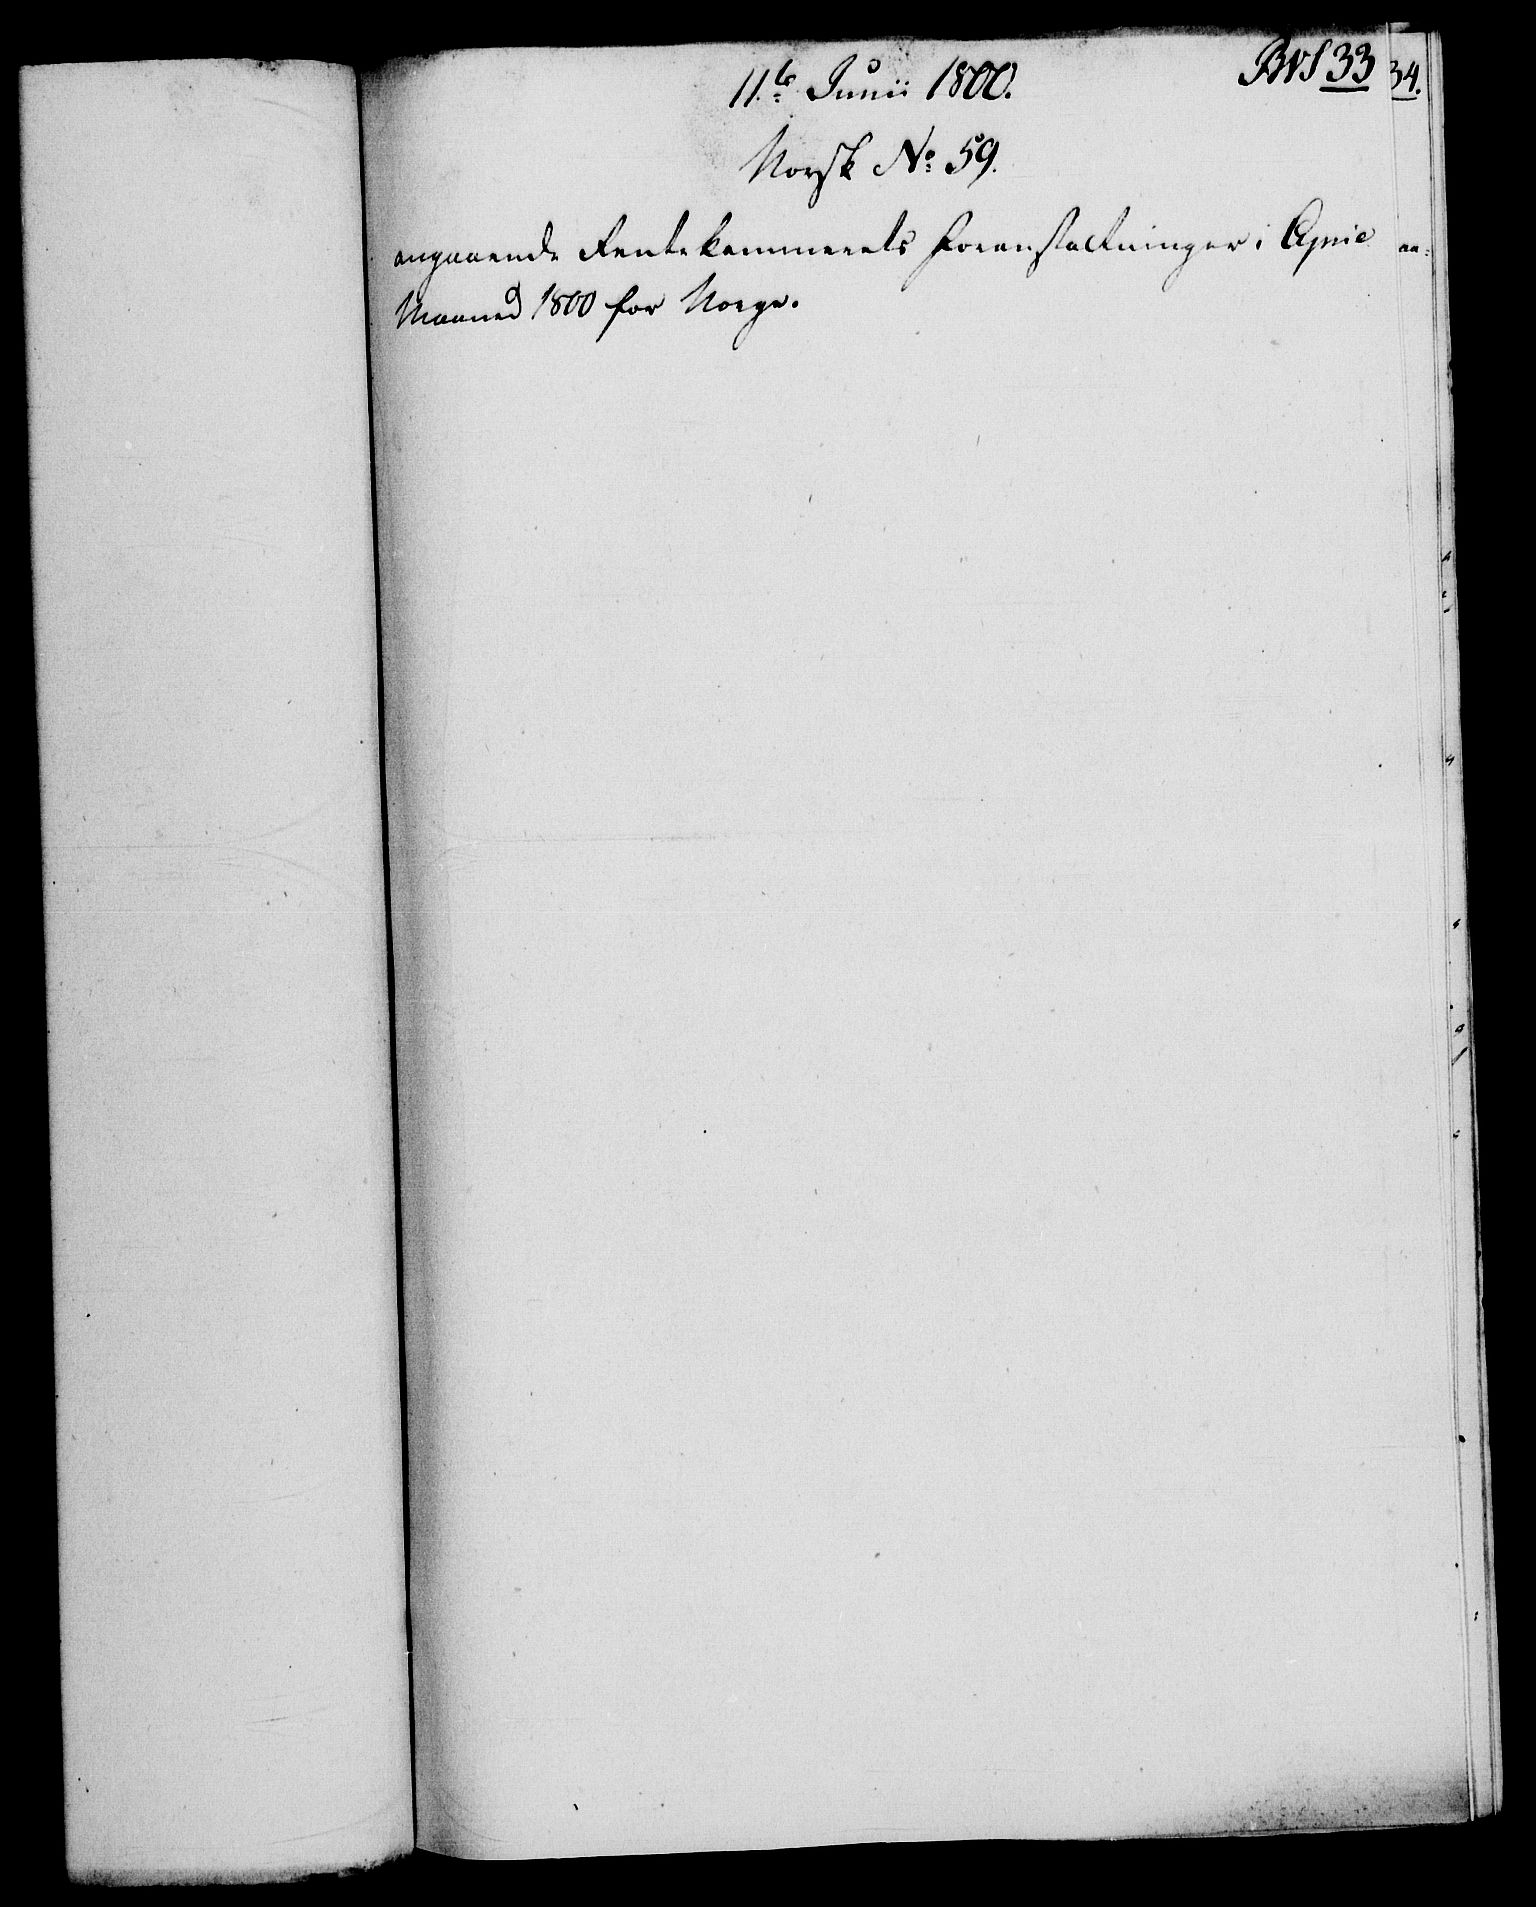 11te Junii 1800.
BN 33
34.
Norsk No: 59.
angaaende Rentekammerets Foranstaltninger i April
Maaned 1800 for Norge.